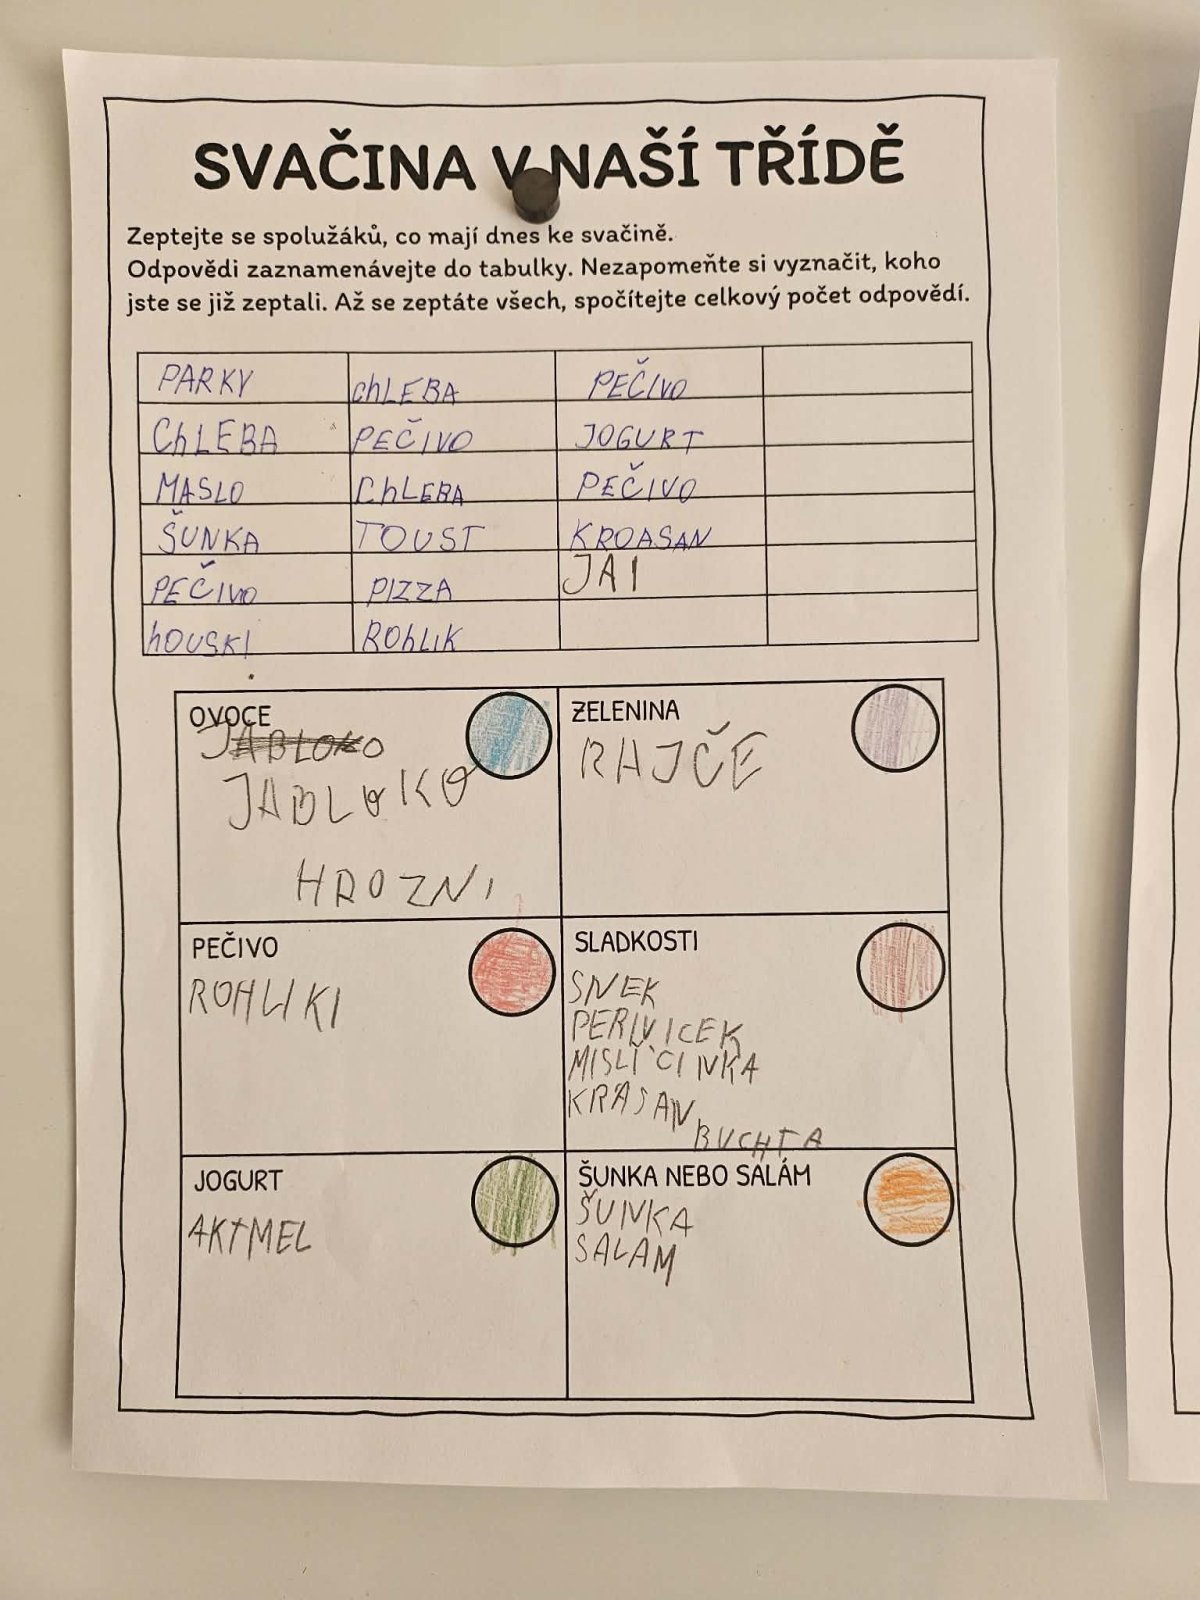 SVAČINA V NAŠÍ TŘÍDĚ
Zeptejte se spolužáků, co mají dnes ke svačině.
Odpovědi zaznamenávejte do tabulky. Nezapomeňte si vyznačit, koho
jste se již zeptali. Až se zeptáte všech, spočítejte celkový počet odpovědí.
PARKY ChLEBA PEČIVO
ChLEBA PEČIVO JOGURT
MASLO ChLEBA PEČIVO
ŠUNKA TOUST KROASAN
PEČIVO PIZZA JA I
hOUSKI ROhLIK
OVOCE
JABLOKO
JABLOKO
HROZNI
ZELENINA
RAJČE
PEČIVO
ROHLIKI
SLADKOSTI
SNEK
PERNICEK
MISLIČINKA
KRASAN
BUCHTA
JOGURT
AKTMEL
ŠUNKA NEBO SALÁM
ŠUNKA
SALAM